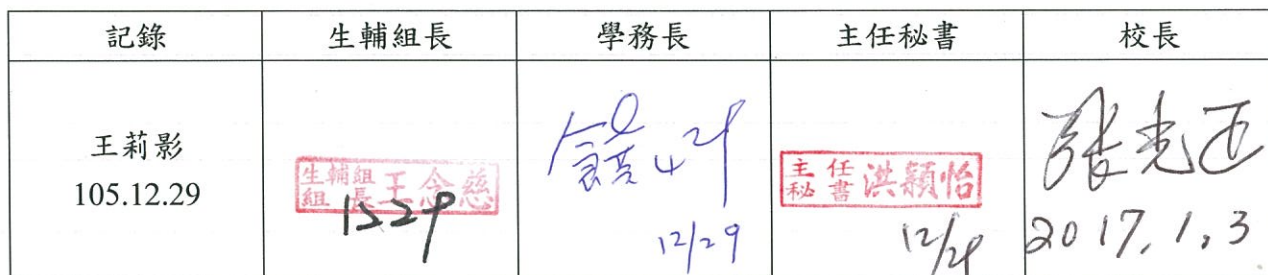 記錄 生輔組長 學務長 主任秘書 校長
王莉影
105.12.29
生輔組組長王念慈
1229
12/29
主任秘書洪穎怡
12/29
張光正
2017.1.3